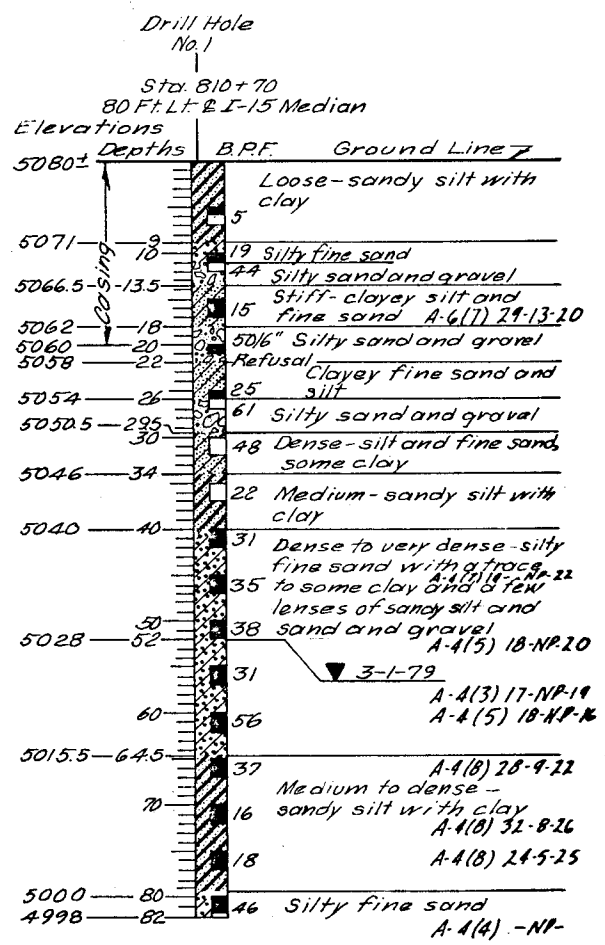 Drill Hole
No. 1
Sta. 810+70
80 Ft. Lt. ℄ I-15 Median
Elevations
Depths B.P.F. Ground Line
5080±
Loose-sandy silt with
clay
5
Casing
5071 9
10 19 Silty fine sand
44 Silty sand and gravel
5066.5 13.5
Stiff-clayey silt and
15 fine sand A-6(7) 29-13-20
5062 18
5060 20 50/6" Silty sand and gravel
5058 22 Refusal
Clayey fine sand and
silt
5054 26 25
61 Silty sand and gravel
5050.5 29.5
30
48 Dense-silt and fine sand,
some clay
5046 34
22 Medium-sandy silt with
clay
5040 40
31 Dense to very dense-silty
fine sand with a trace
35 to some clay and a few
lenses of sandy silt and
50 38 sand and gravel
5028 52 A-4(5) 18-NP-20
3-1-79
31
A-4(3) 17-NP-19
60 56 A-4(5) 18-NP-16
5015.5 64.5
37 A-4(8) 28-9-22
Medium to dense-
70 16 sandy silt with clay
A-4(8) 32-8-26
18 A-4(8) 24-5-25
5000 80
46 Silty fine sand
4998 82
A-4(4) -NP-